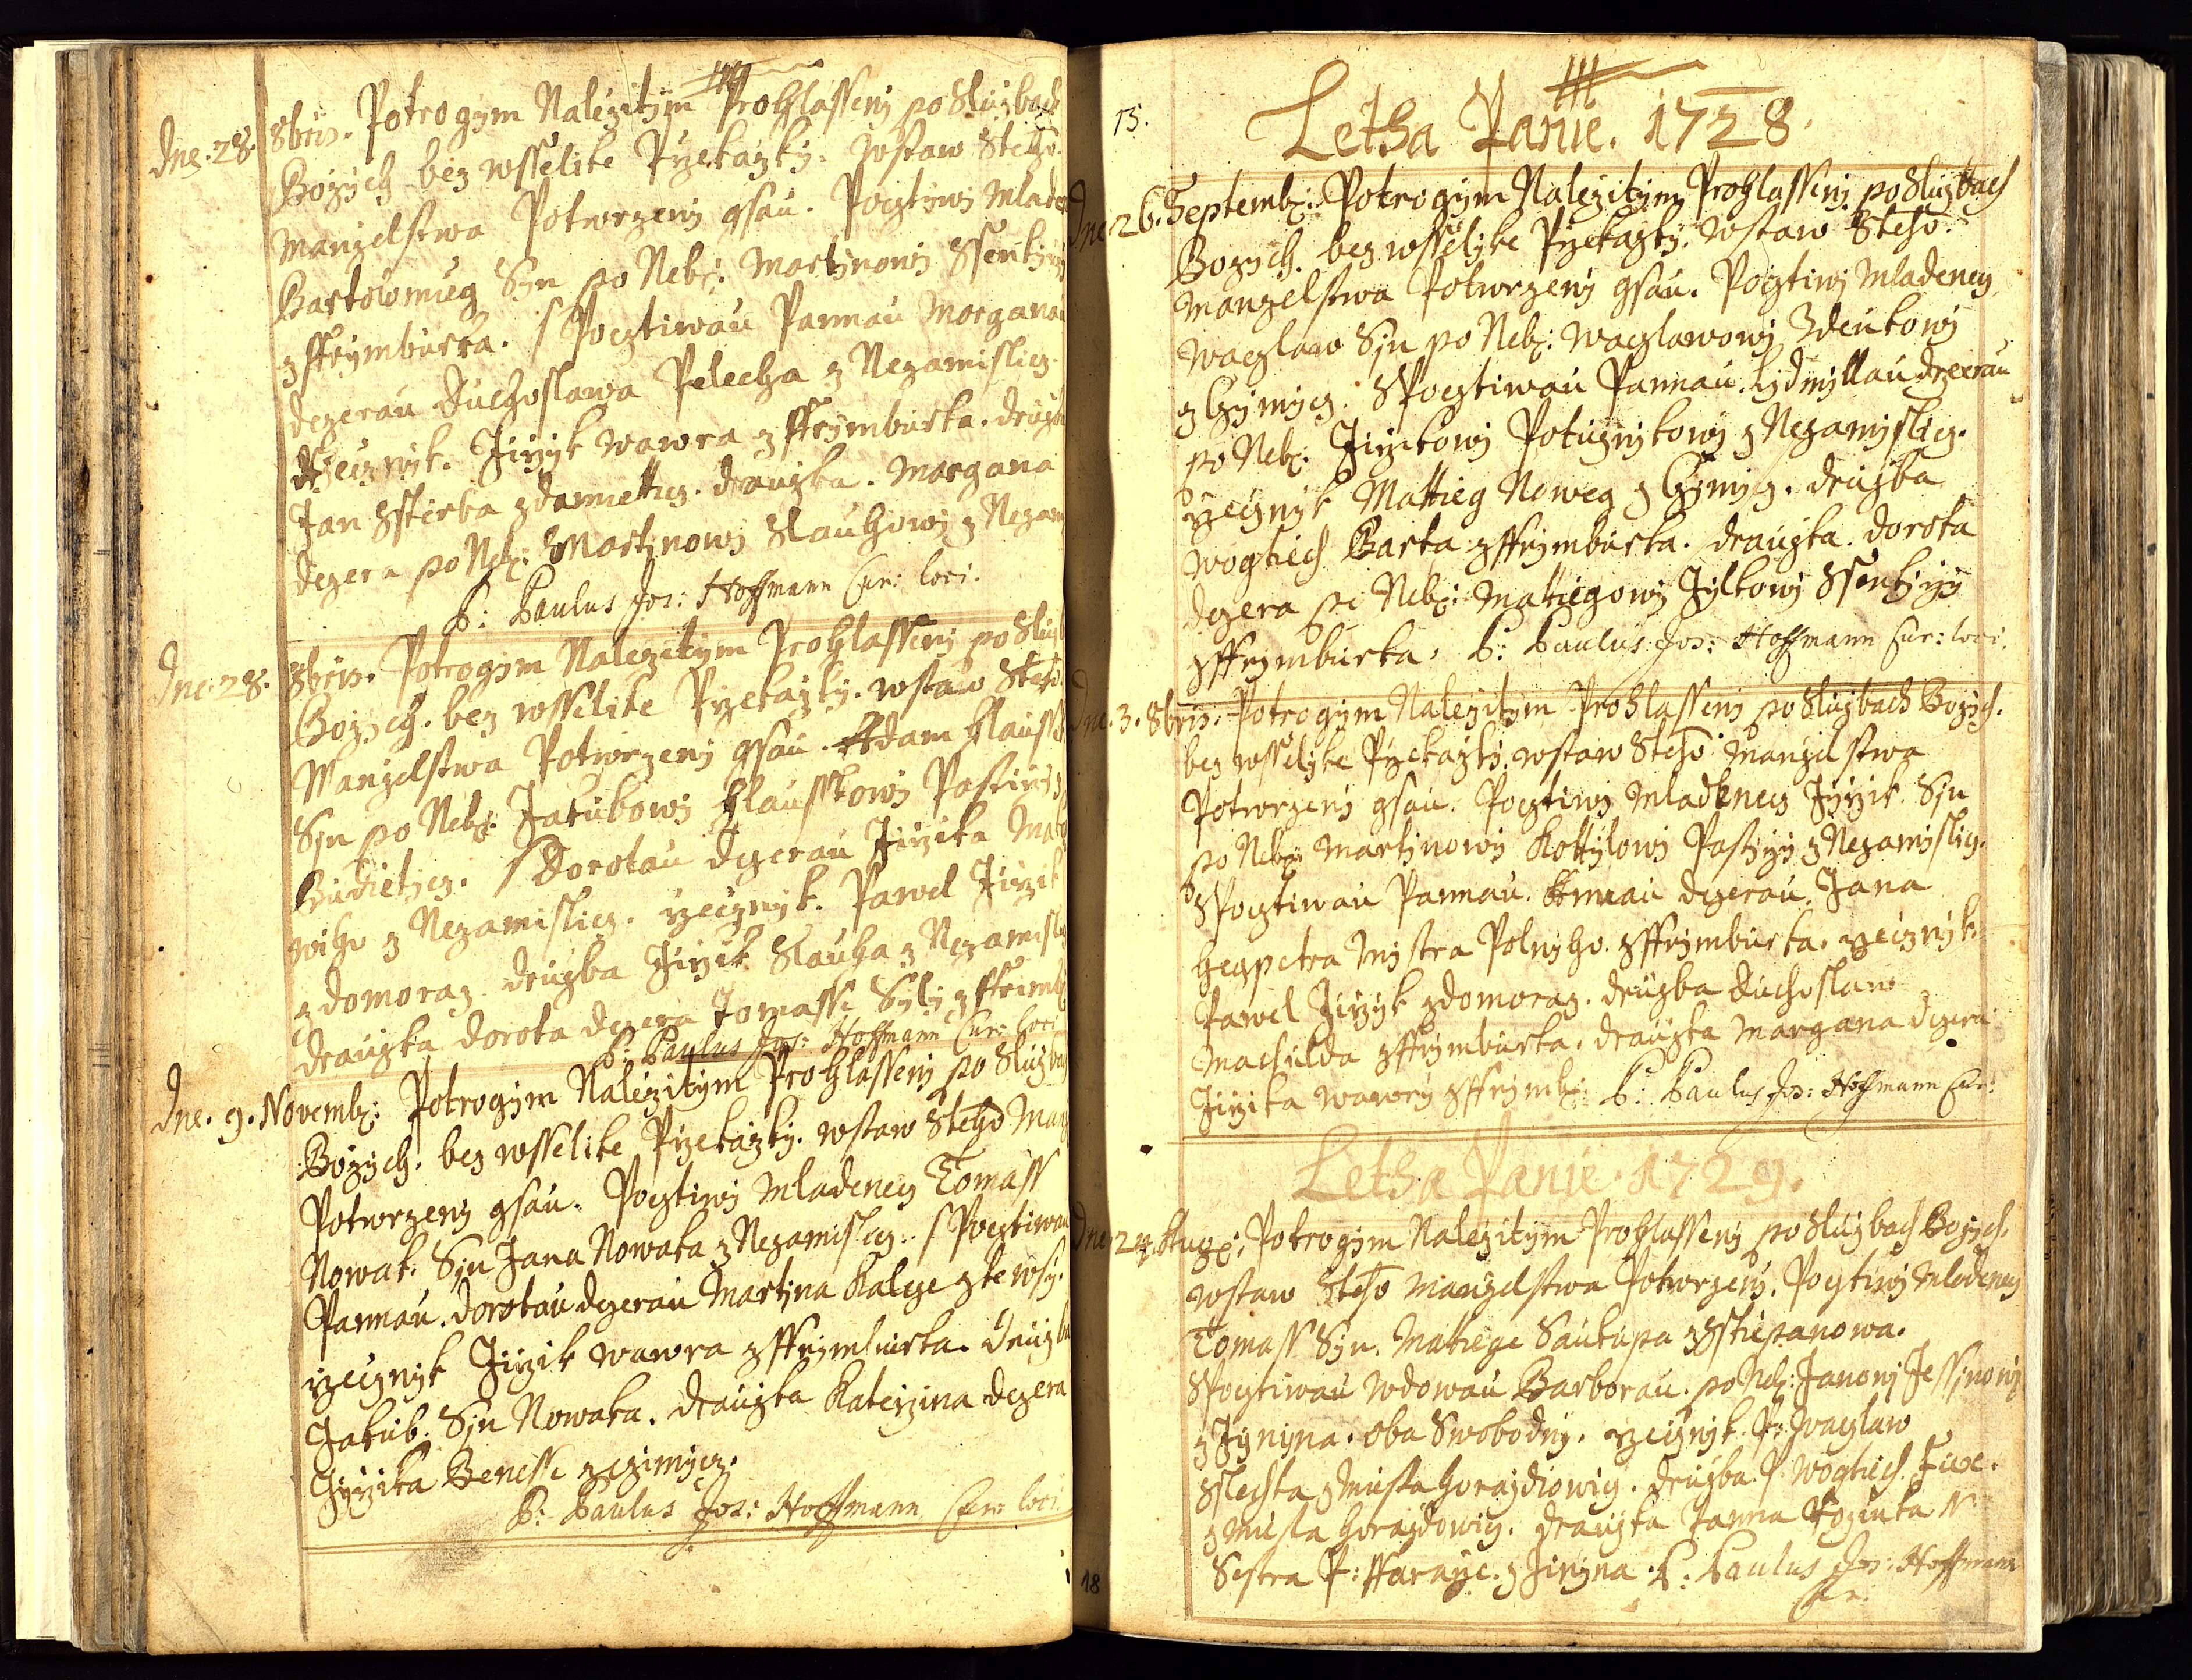 Dne. 28. 8bris. Potrogym Nalezitym Prohlasseny po Sluzbach
Bozych bez wsselike Przekazky. wstaw Steho
Manzelstwa Potwrzeny gsau. Pocztiwy Mladen
Bartolomieg Syn po Neb: Martinowy Ssenkyrzy
z Frymburka. S Pocztiwau Pannau Morganau
dczerau Duchoslawa Pelecha z Nezamislicz.
Rzecznyk. Jirzyk Wawra z Frymburka. druzba
Jan Sstierba z Damieticz. drauzka. Morgana
dczera po Neb: Martinowy Slauhowy z Nezam
P: Paulus Jos: Hoffmann Cur: loci.
Dne 28. 8bris. Potrogym Nalezitym Prohlasseny po Sluzb
Bozych. bez wsselike Przekazky. wstaw Steho
Manzelstwa Potwrzeny gsau. Adam Hlaussk
Syn po Neb: Jakubowy Hlausskowy
Budieticz. S Dorotau dczerau Jirzika
z Nezamislicz. rzecznyk. Pawel Jirzik
z Domoraz. druzba Jirzik Slauha z Nezamisli
drauzka Dorota dczera Tomasse Syly z Frimb
P: Paulus Jos: Hoffmann Cur: loci
Dne. 9. Novemb: Potrogym Nalezitym Prohlasseny po Sluzbach
Bozych. bez wsselike Przekazky. wstaw Steho Man
Potwrzeny gsau. Pocztiwy Mladenecz Tomass
Nowak. Syn Jana Nowaka z Nezamislicz. S Pocztiwau
Pannau. Dorotau dczerau Martina Kalcze z te wsy.
rzecznyk Jirzik Wawra z Frymburka. druzba
Jakub. Syn Nowaka. drauzka Katerzina dczera
Jirzika Benesse z Czimicz.
P: Paulus Jos: Hoffmann Cur: loci
18
15.
Letha Panie. 1728.
Dne 26. Septemb: Potrogym Nalezitym Prohlasseny po Sluzbach
Bozych. bez wsselyke Przekazky. wstaw Steho
Manzelstwa Potwrzeny gsau. Pocztiwy Mladenecz
Waczlaw Syn po Neb: Waczlawowy Zdenkowy
z Czymicz. S Pocztiwau Pannau. Lydmyllau dczerau
po Neb: Jirzikowy Potuznykowy z Nezamyslicz.
rzecznyk Mattieg Noweg z Czymicz. druzba
Wogtiech Barta z Frymburka. drauzka. Dorota
dczera po Neb: Matiegowy Jylkowy Ssenkyrzy
z Frymburka. P: Paulus Jos: Hoffmann Cur: loci.
Dne. 3. 8bris. Potrogym Nalezitym Prohlasseny po Sluzbach Bozych.
bez wsselyke Przekazky. wstaw Steho Manzelstwa
Potwrzeny gsau. Pocztiwy Mladenecz Jirzik Syn
po Neb: Martinowy Kottylowy Pastyrzy z Nezamyslicz.
S Pocztiwau Pannau. Annau dczerau. Jana
Gegpetra Mystra Polnyho. z Frymburka. rzecznyk.
Pawel Jirzyk z Domoraz. druzba Duchoslaw
Machulda z Frymburka. drauzka Margana dczera
Jirzika Wawry z Frymb: P: Paulus Jos: Hoffmann Cur:
Letha Panie. 1729.
Dne 24. Aug: Potrogym Nalezitym Prohlasseny po Sluzbach Bozych.
wstaw Steho Manzelstwa Potwrzeny. Pocztiwy Mladenecz
Tomass Syn. Mattiege Saukupa z Sstiepanowa.
S Pocztiwau Wdowau Barborau. po Neb: Janowy Jessynowy
z Jynyna. oba Swobodny. rzecznyk. P: Waczlaw
Sslechta z Miesta Horazdiowicz. druzba. P: Wogtiech
z Miesta Horazdowicz. drauzka Panna
Sestra P: Fararze. z Jinyna. P: Paulus Jos: Hoffmann
Cur: